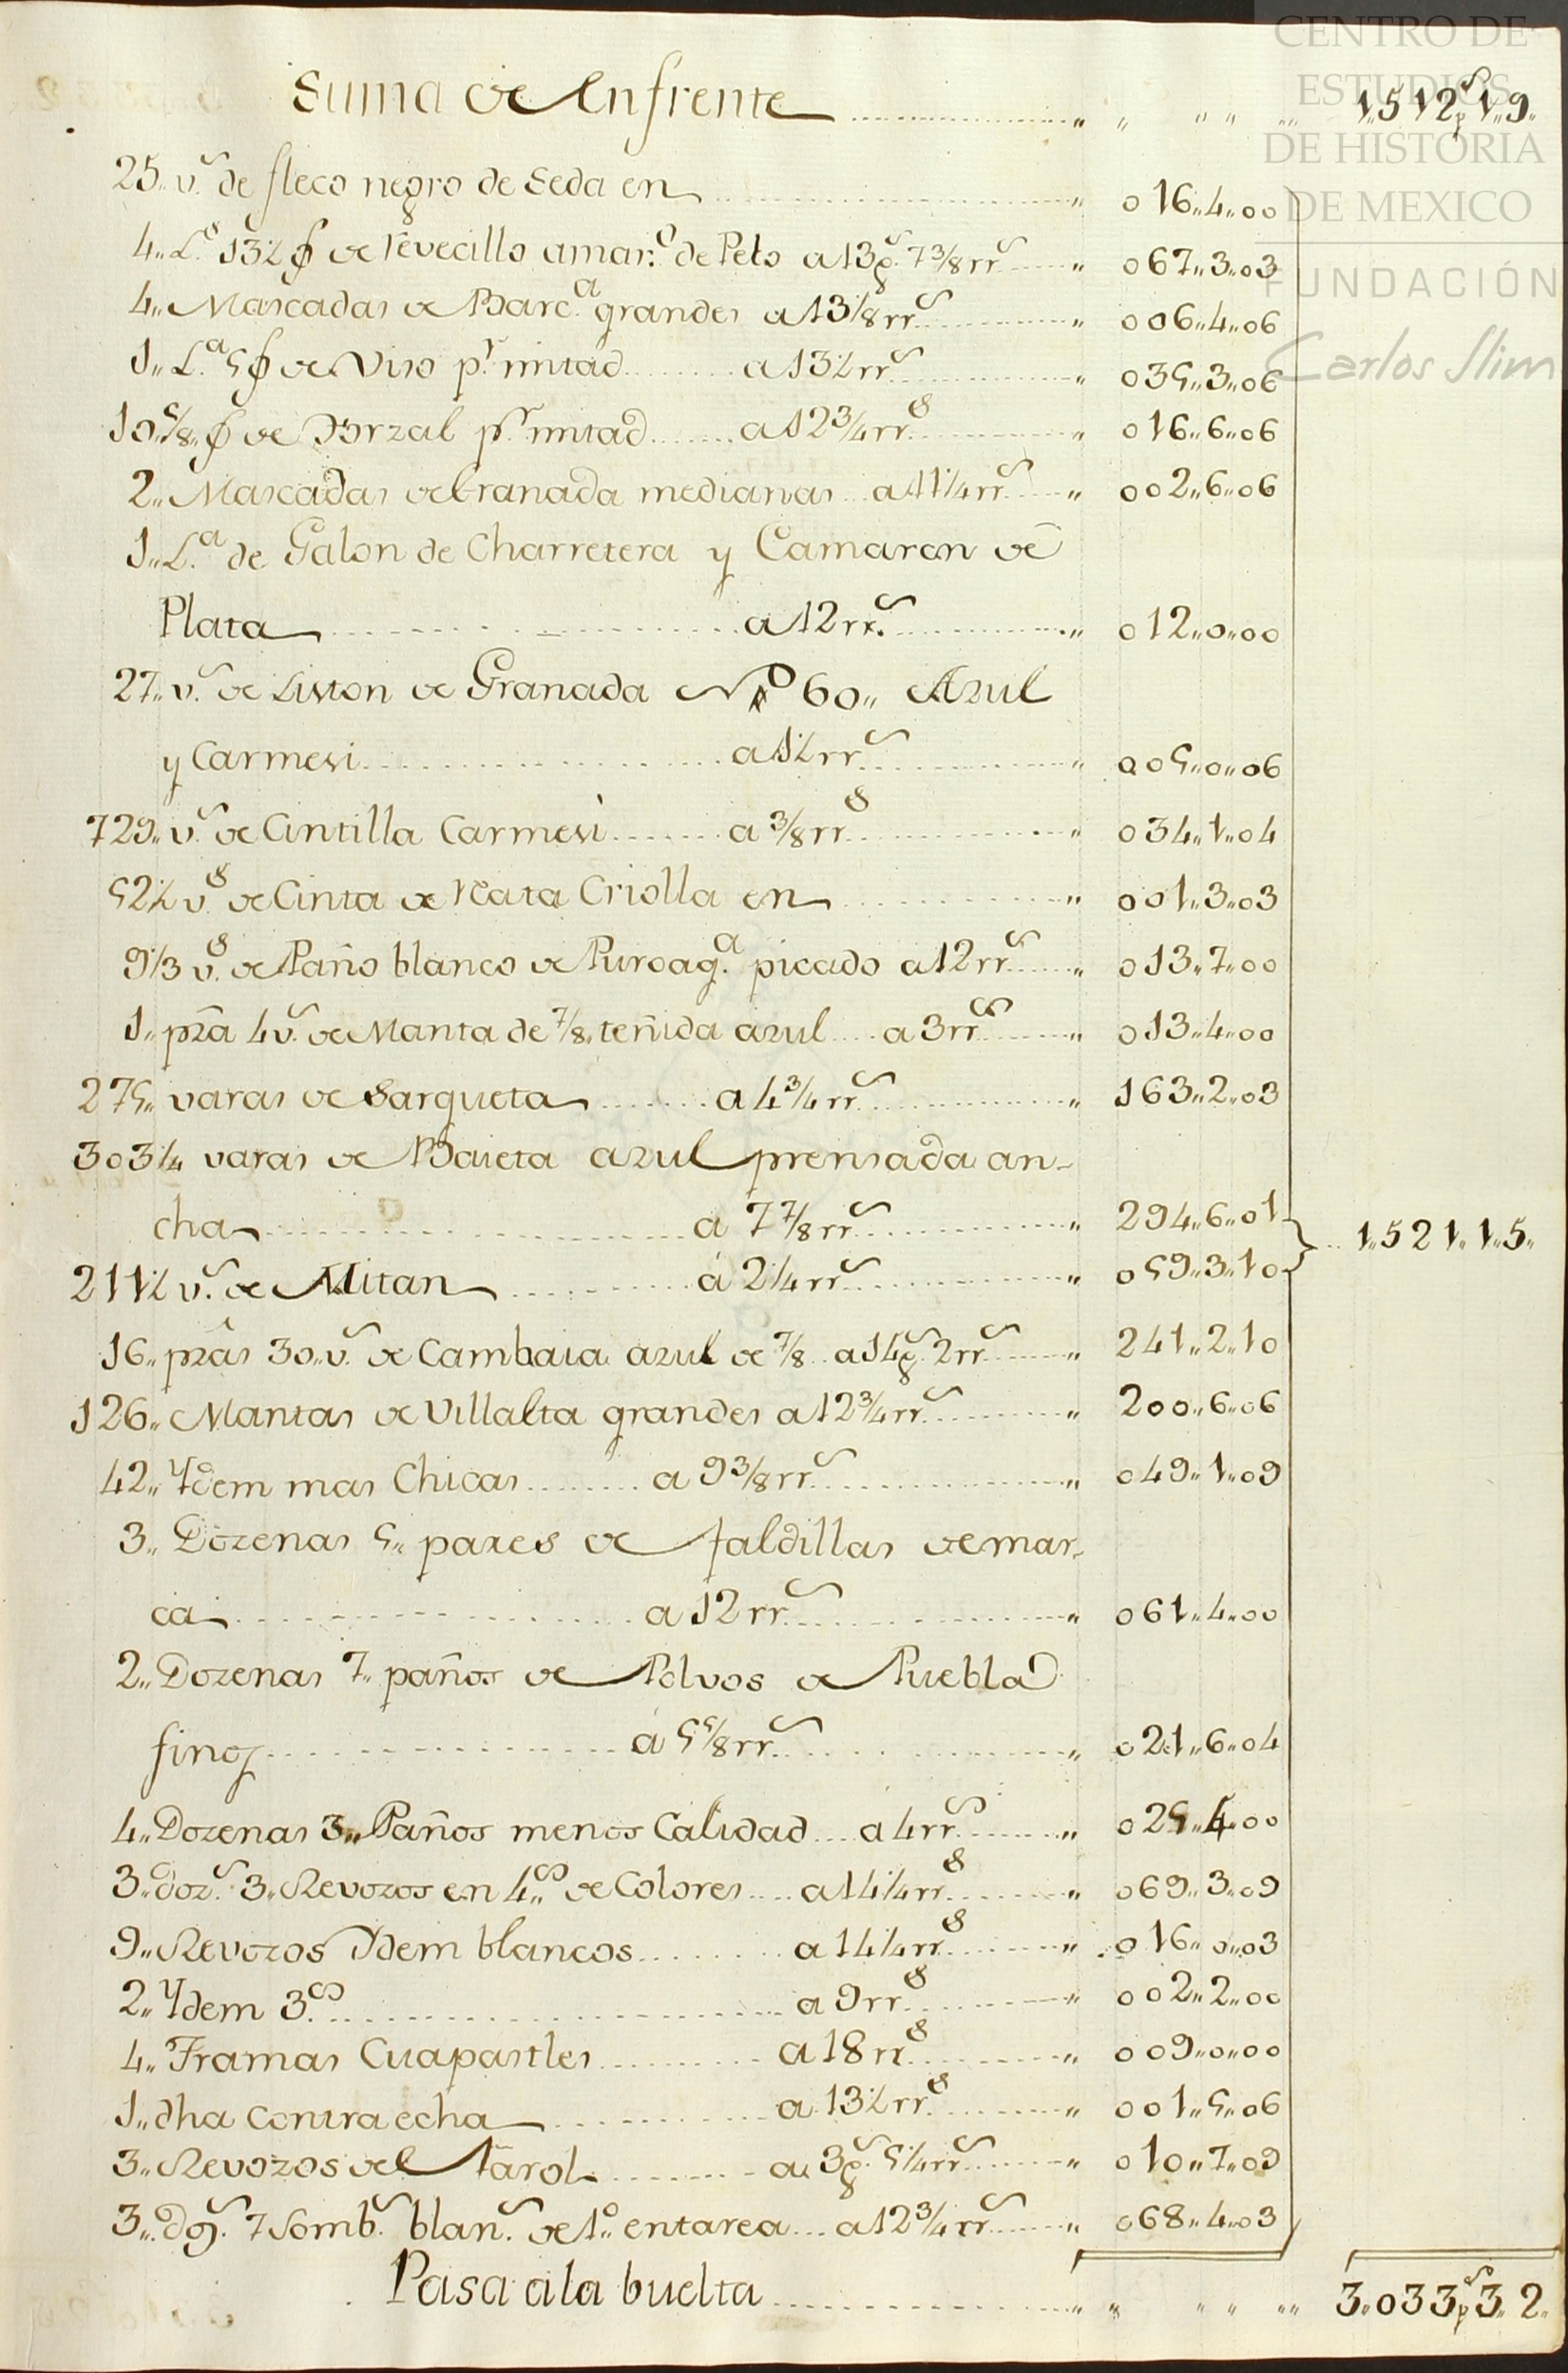 CENTRO DE
ESTUDIOS
DE HISTORIA
DE MEXICO
FUNDACIÓN
Carlos Slim
Suma de Enfrente 1,,512ps1,,9,,
25,, vs de fleco negro de Seda en 016,,4,,00
4,, Ls 13½ de Revecillo amaro de Pelo a 13ps 7 3/8 rrs 067,,3,,03
4,, Mascadas de Barca grandes a 13 1/8 rrs 006,,4,,06
1,, La 5 de Viso pr mitad a 13½ rrs 035,,3,,06
10 5/8,, de Torzal pr mitad a 12¾ rrs 016,,6,,06
2,, Mascadas de Granada medianas a 11¼ rrs 002,,6,,06
1,, La de Galon de Charretera y Camaron de
Plata a 12 rrs 012,,0,,00
27,, vs de Liston de Granada No 60,, Azul
y Carmesi a 1½ rrs 005,,0,,06
729,, vs de Cintilla Carmesi a 3/8 rrs 034,,1,,04
52½ vs de Cinta de Reata Criolla en 001,,3,,03
9 1/3 vs de Paño blanco de Quroaqa picado a 12 rrs 013,,7,,00
1,, pza 4 vs de Manta de 7/8,, teñida azul a 3 rrs 013,,4,,00
275,, varas de Sargueta a 4¾ rrs 163,,2,,03
303¼ varas de Baieta azul prensada an-
cha a 7 7/8 rrs 294,,6,,01 1,,521,,1,,5,,
211½ vs de Mitan á 2¼ rrs 059,,3,,10
16,, pzas 30,, vs de Cambaia azul de 7/8 a 14ps 2 rrs 241,,2,,10
126,, Mantas de Villalta grandes a 12¾ rrs 200,,6,,06
42,, Ydem mas Chicas a 9 3/8 rrs 049,,1,,09
3,, Dozenas 5,, pares de faldillas de mar-
ca a 12 rrs 061,,4,,00
2,, Dozenas 7,, paños de Polvos de Puebla
finos á 5 5/8 rrs 021,,6,,04
4,, Dozenas 3,, Paños menos Calidad a 4 rrs 025,,4,,00
3,, dozs 3,, Revozos en 4,,os de Colores a 14¼ rrs 069,,3,,09
9,, Revozos Ydem blancos a 14¼ rrs 016,,0,,03
2,, Ydem 3.os a 9 rrs 002,,2,,00
4,, Tramas Cuapastles a 18 rrs 009,,0,,00
1,, dha Contraecha a 13½ rrs 001,,5,,06
3,, Revozos del farol a 3ps 5¼ rrs 010,,7,,09
3,, dozs 7 Sombs blans de 1o,, entarea a 12¾ rrs 068,,4,,03
Pasa a la buelta 3,,033ps3,,2,,